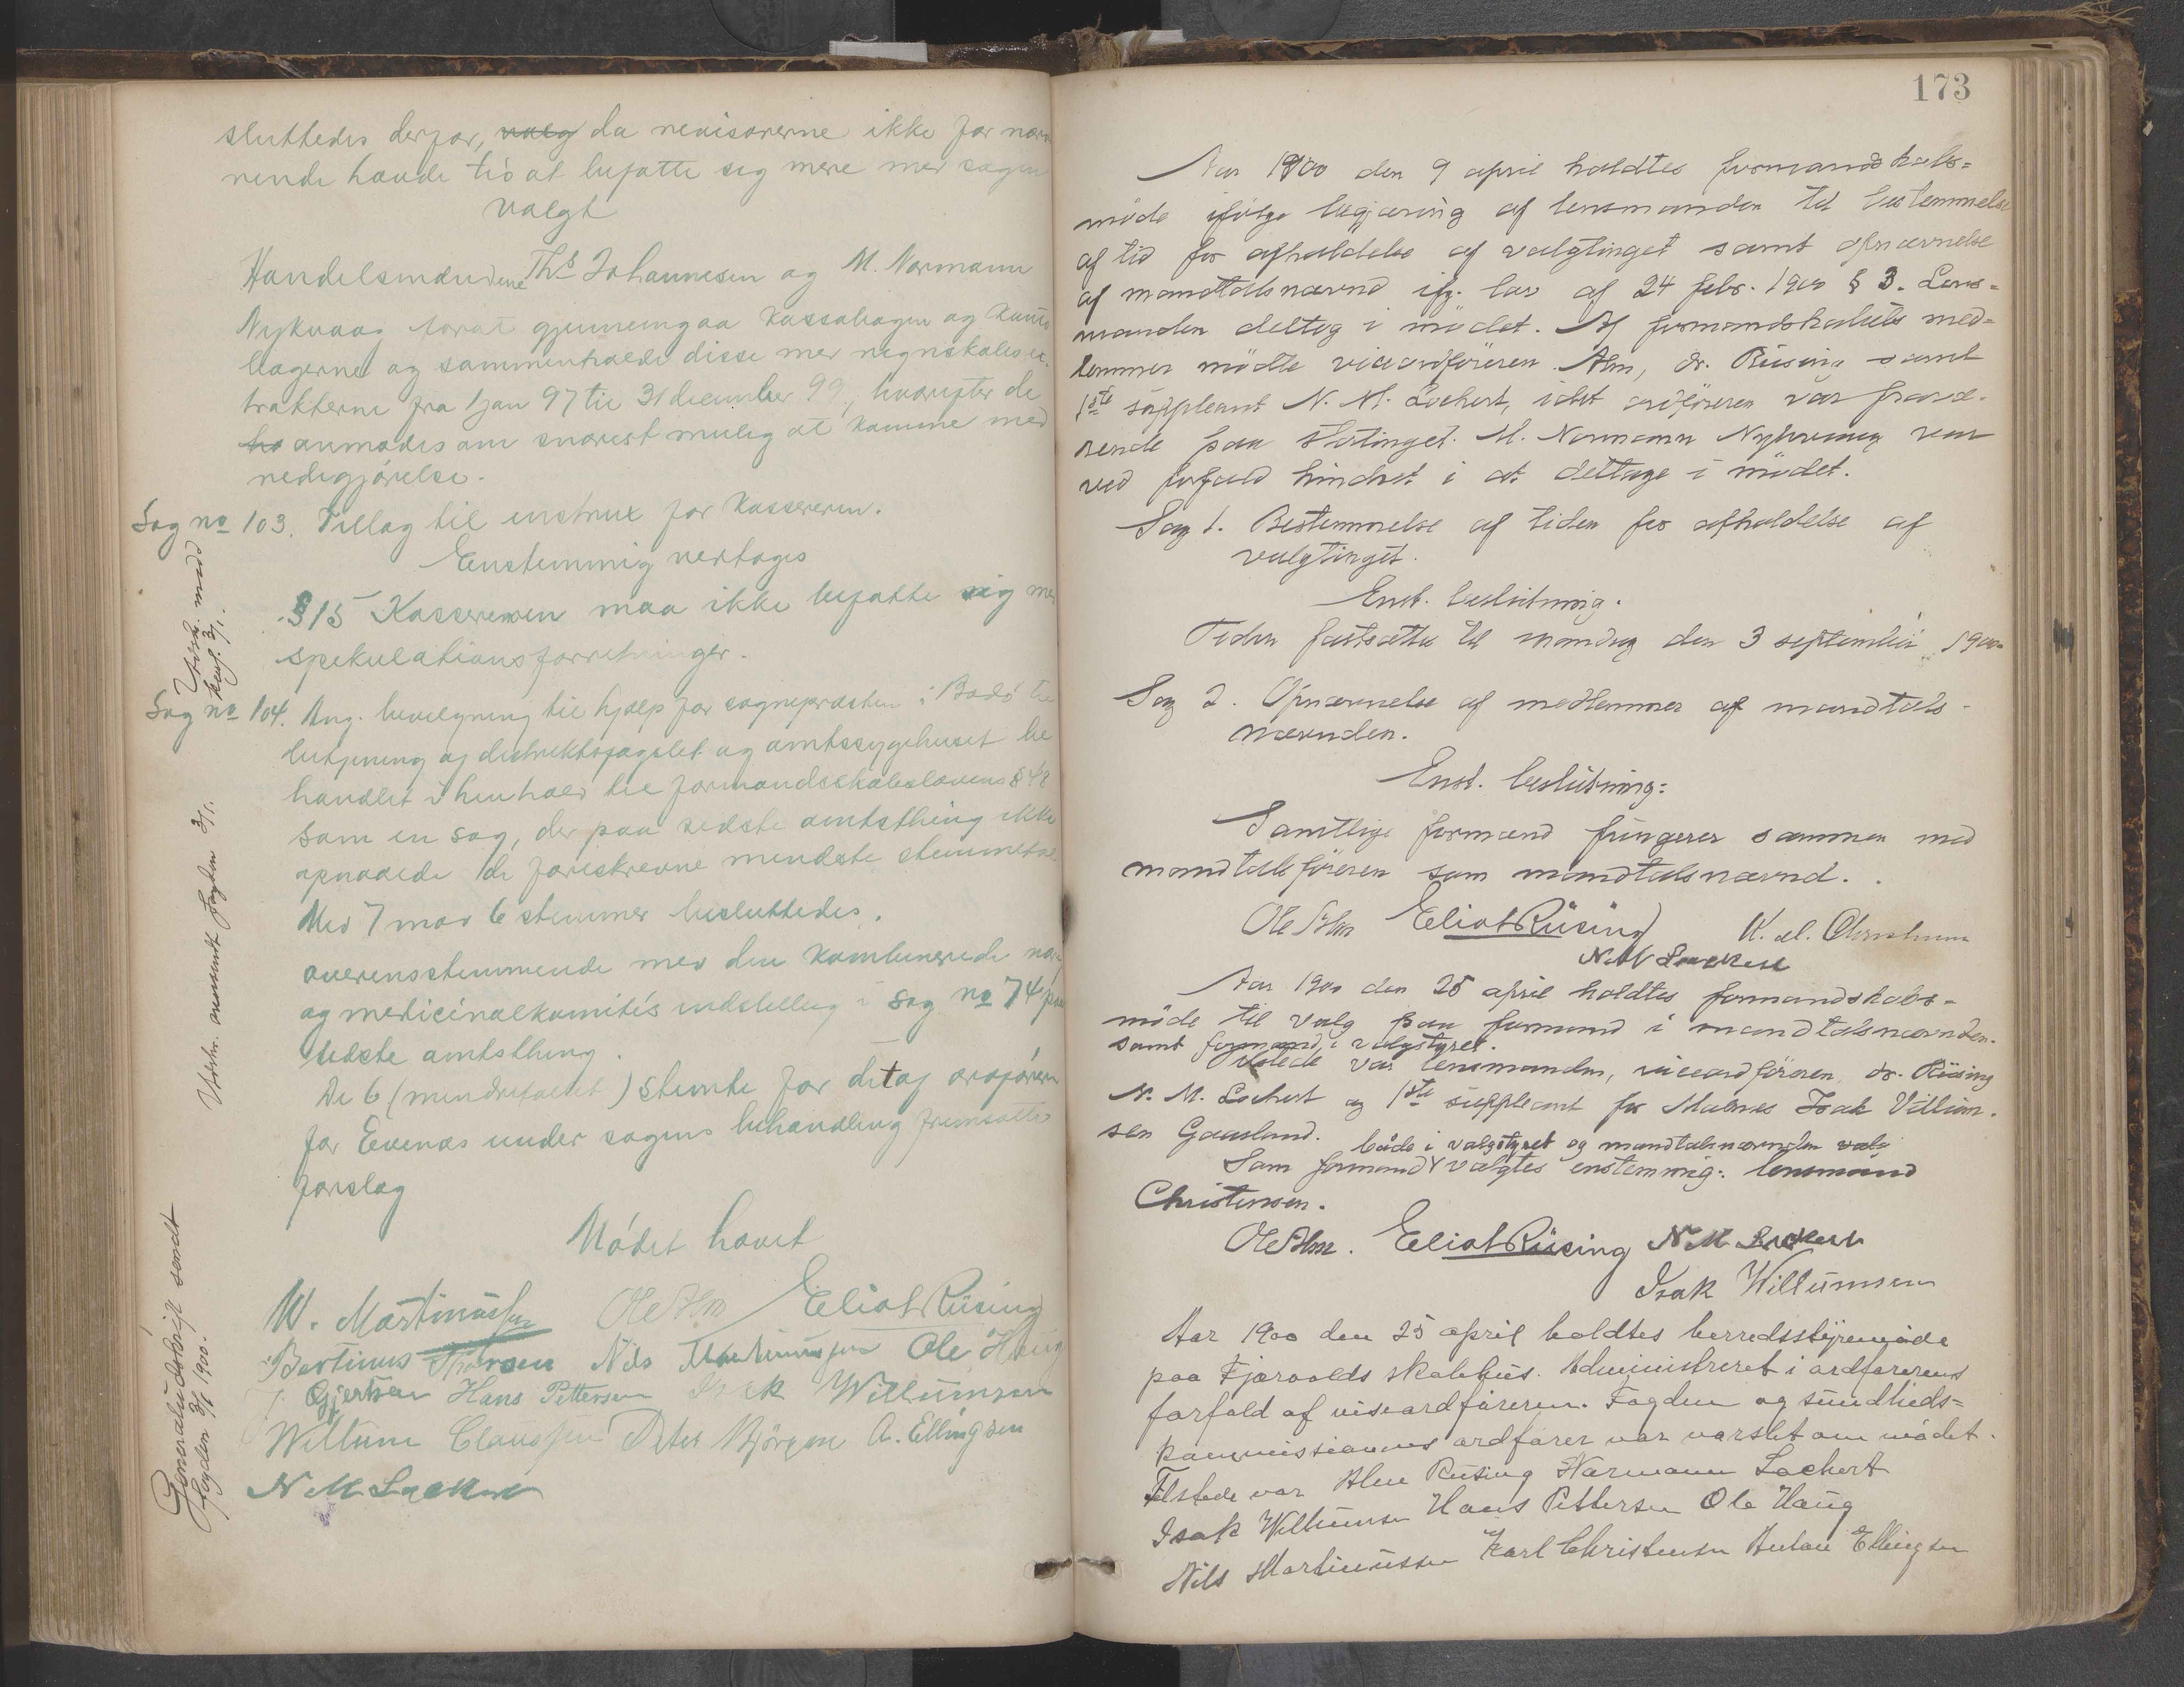 sluttedes derfor, valg da revisorerne ikke for nær
rende havde tid at befatte sig mere med sagen
valgt
Handelsmændene Ths Johannesen og M. Normann
Nykvaag forat gjennemgaa kassabogen og
lagerne og sammenholde disse med regnskabs
trakterne fra 1 jan 97 til 31 december 99, hvorefter de
anmodes om snarest mulig at komme med
redegjörelse.
Sag no 103. Tillæg til instrux for kassereren.
Enstemmig vertages
§ 15 Kassereren maa ikke befatte sig med
spekulationsforretninger.
Sag no 104. Ang. bevilgning til hjælp for sognepræsten i Bodö til
betjening af distriktsfængslet og amtssygehuset be
handlet i henhold til formandsskabslovens § 48
som en sag, der paa sidste amtsthing ikke
opnaaede de foreskrevne mindste stemmetal
Med 7 mod 6 stemmer besluttedes.
overensstemmende med den kombinerede
og medicinalkomités indstilling i sag no 74 paa
sidste amtsthing.
De 6 (mindretallet) stemte for det af ordföreren
for Evenæs under sagens behandling fremsatte
forslag
Mödet hævet
W. Martinussen Ole Alm Eliot Rüsing
Bertinus Nils Martinussen Ole Haug
Gjertsen Hans Pettersen Isak Willumsen
Willum Claussen Peter Björgen A. Ellingsen
N M Lockert
Utsk. med
3/1.
Utskr. oversendt fogden 3/1.
Generaludskrift sendt
fogden 3/1 1900.
173
Aar 1900 den 9 april holdtes formandskabs=
möde ifölge begjæring af lensmanden til bestemmelse
af tid for afholdelse af valgtinget samt opnævnelse
af mandtalsnævnd ifg. lov af 24 febr. 1900 § 3. Lens=
manden deltog i mödet. Af formandskabets med=
lemmer mödte viceordföreren Alm, dr. Rüsing samt
1ste suppleant N. M. Lockert, idet ordföreren var fravæ-
rende paa Stortinget. M. Normann Nykvaag var
ved forfald hindret i at deltage i mödet.
Sag 1. Bestemmelse af tiden for afholdelse af
valgtinget.
Enst. beslutning.
Tiden fastsættes til mandag den 3 september 1900
Sag 2. Opnævnelse af medlemmer af mandtals-
nævnden.
Enst. beslutning:
Samtlige formænd fungerer sammen med
mandtalsföreren som mandtalsnævnd.
Ole Alm Eliot Rüsing K. M. Christensen
N M Lockert
Aar 1900 den 25 april holdtes formandskabs-
möde til valg paa formand i mandtalsnævnden.
samt formand i valgstyret.
Tilstede var lensmanden, viceordföreren, dr. Rüsing
N. M. Lockert og 1ste suppleant for Malnes Isak Villum-
sen Gaasland.
både i valgstyret og mandtalsnævnden valg
Som formand valgtes enstemmig: lensmand
Christensen.
Ole Alm. Eliot Rüsing N M Lockert
Isak Willumsen
Aar 1900 den 25 april holdtes herredsstyremöde
paa Fjærvolds skolehus. Administreret i ordförerens
forfald af viseordföreren. Fogden og sundheds=
kommissionens ordförer var varslet om mödet.
Tilstede var Alm Rüsing Normann Lockert
Isak Willumsen Hans Pettersen Ole Haug
Nils Martinussen Karl Christensen Anton Ellingsen